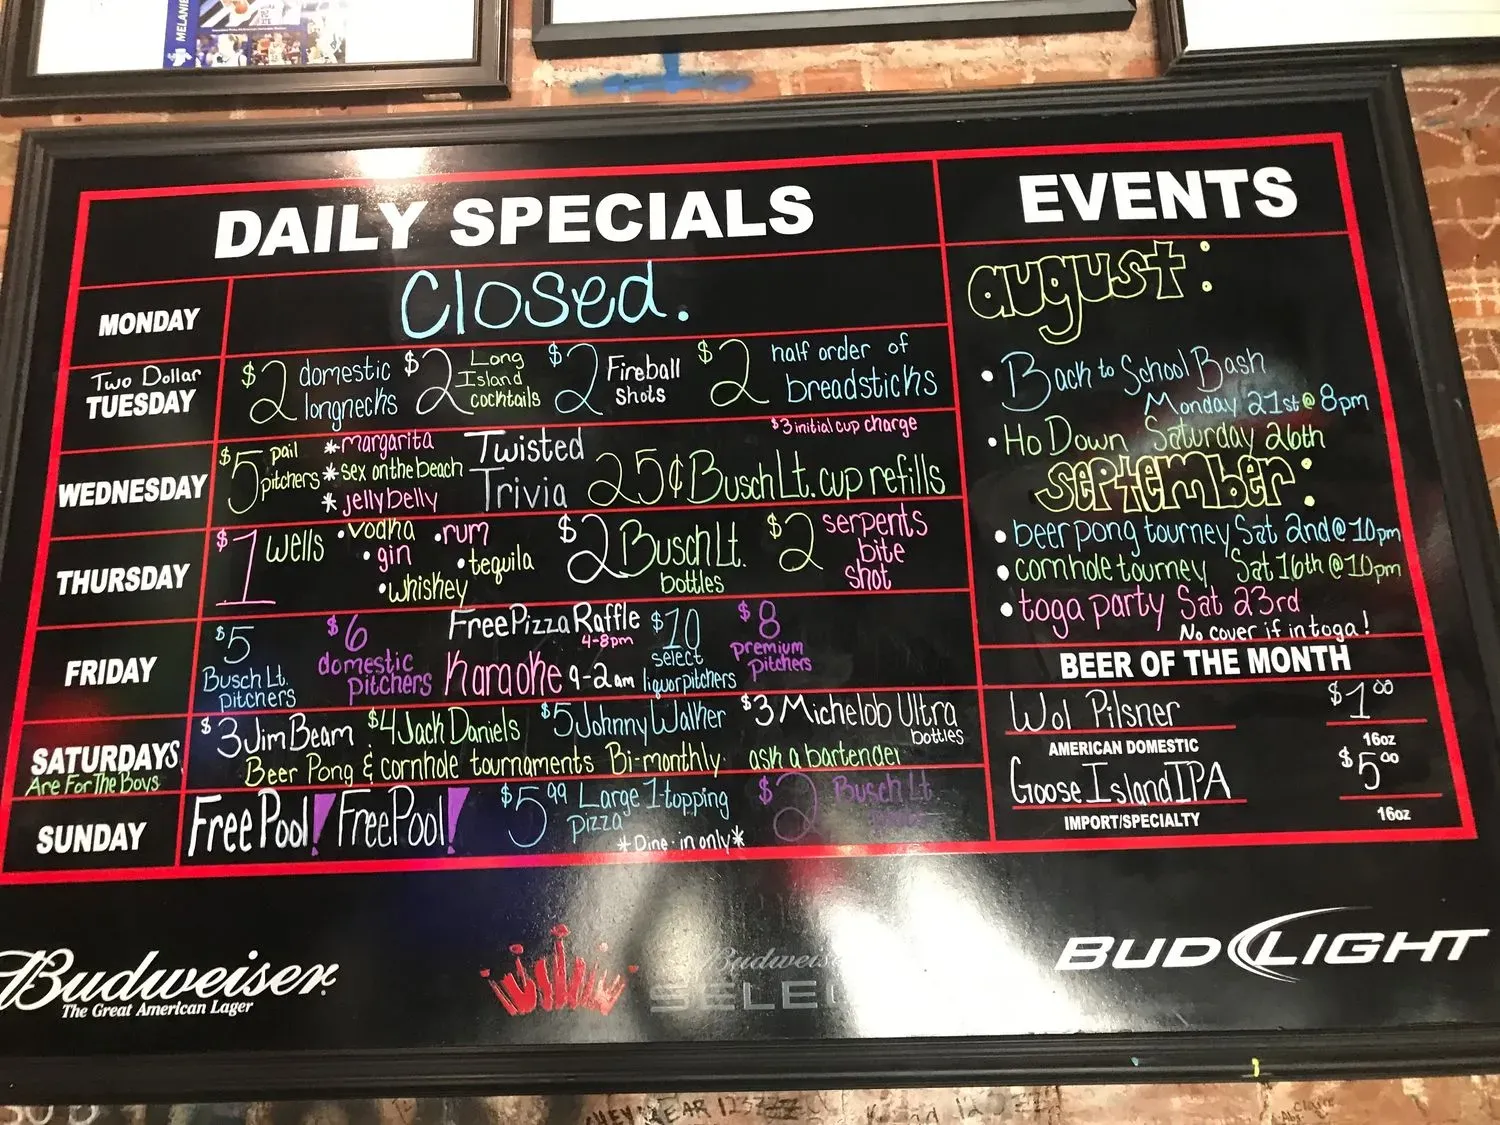 MELANIE
DAILY SPECIALS
MONDAY
Closed.
Two Dollar
TUESDAY
$2 domestic longnecks
$2 Long Island cocktails
$2 Fireball Shots
$2 half order of breadsticks
WEDNESDAY
$5 pail pitchers
*margarita
*sex on the beach
*jelly belly
Twisted Trivia
$3 initial cup charge
25¢ Busch Lt. cup refills
THURSDAY
$1 wells
•vodka
•gin
•whiskey
•rum
•tequila
$2 Busch Lt. bottles
$2 serpents bite shot
FRIDAY
$5 Busch Lt. pitchers
$6 domestic pitchers
Free Pizza Raffle
4-8pm
Karaoke 9-2am
$10 select liquor pitchers
$8 premium pitchers
SATURDAYS
Are For The Boys
$3 Jim Beam $4 Jack Daniels $5 Johnny Walker $3 Michelob Ultra bottles
Beer Pong & cornhole tournaments Bi-monthly. ask a bartender
SUNDAY
Free Pool! Free Pool!
$5.99 Large 1-topping pizza
*Dine-in only*
$2 Busch Lt
EVENTS
august:
• Back to School Bash
Monday 21st @ 8pm
• Ho Down Saturday 26th
September:
• beer pong tourney Sat 2nd @ 10pm
• cornhole tourney Sat 16th @ 10pm
• toga party Sat 23rd
No cover if in toga!
BEER OF THE MONTH
Wol Pilsner $1.00
AMERICAN DOMESTIC 16oz
Goose Island IPA $5.00
IMPORT/SPECIALTY 16oz
Budweiser
The Great American Lager
Budweiser
SELEC
BUD LIGHT